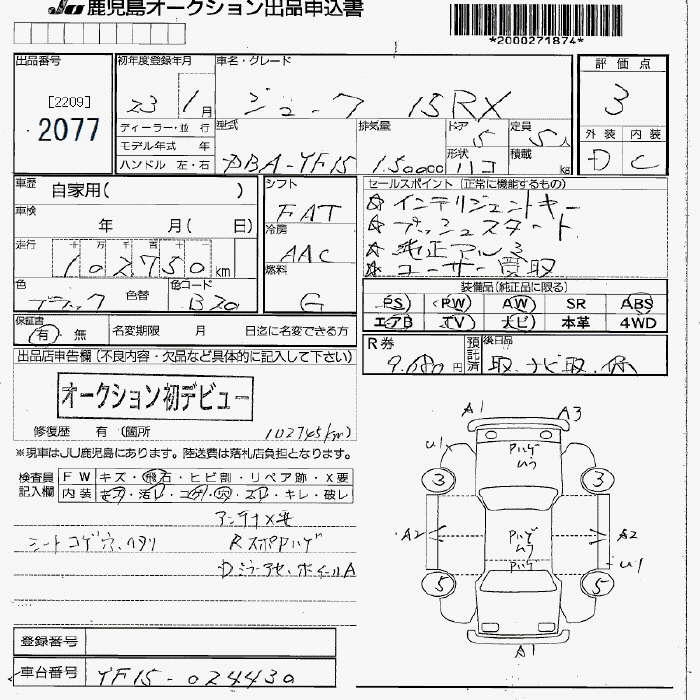 JU 鹿児島オークション出品申込書
*2000271874*
出品番号
[2209]
2077
初年度登録年月
23 1月
車名・グレード
ジューク 15RX
評価点
3
外装 内装
D C
ディーラー・並行
モデル年式 年
ハンドル 左・右
型式
DBA-YF15
排気量
1500cc
ドア
5
定員
5人
形状
ハコ
積載
kg
車歴
自家用( )
車検
年 月( 日)
走行
十 万 千 百 十
102750km
色
ブラック
色替
色コード
B20
シフト
FAT
冷房
AAC
燃料
G
セールスポイント (正常に機能するもの)
☆インテリジェントキー
☆プッシュスタート
☆純正アルミ
☆ユーザー買取
装備品(純正品に限る)
PS PW AW SR ABS
エアB TV ナビ 本革 4WD
保証書
有 無
名変期限 月 日迄に名変できる方
R券
円
預託済
後日品
取、ナビ取、保
出品店申告欄(不良内容・欠品など具体的に記入して下さい)
オークション初デビュー
修復歴 有 (箇所
102745km)
※現車はJU鹿児島にあります。陸送費は落札店負担となります。
検査員記入欄
FW キズ・飛石・ヒビ割・リペア跡・X要
内装 キズ・汚レ・コゲ・穴・スレ・キレ・破レ
アンテナX要
シートコゲ穴、ヘタリ Rスポハゲ
Dミラーアセ、ホイールA
A1 A3
U1
ハゲ
ムラ
3 3
A2 A2
ハゲ
ムラ
ハゲ
U1
5 5
A1
登録番号
車台番号 YF15-024430